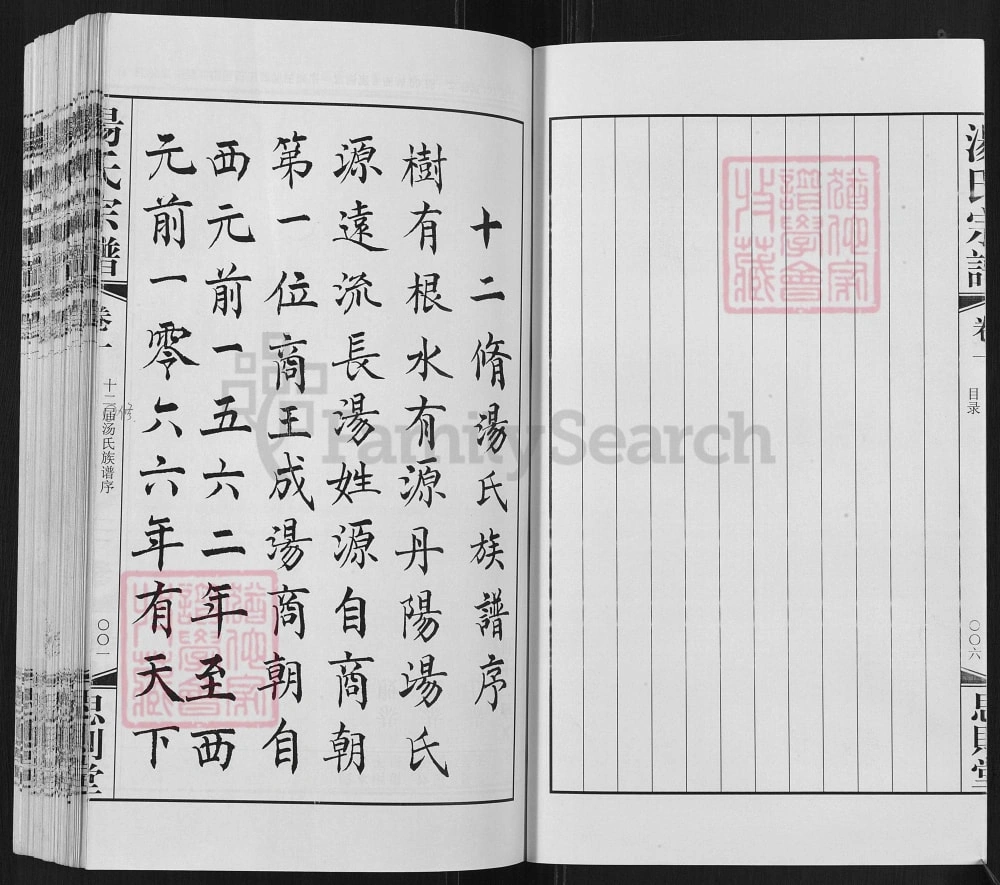 湯氏宗譜
卷一
目录
〇〇六
思則堂
十二脩湯氏族譜序
樹有根水有源丹陽湯氏
源遠流長湯姓源自商朝
第一位商王成湯商朝自
西元前一五六二年至西
元前一零六六年有天下
湯氏宗譜
卷一
十二届汤氏族谱序
修
〇〇一
思則堂
FamilySearch